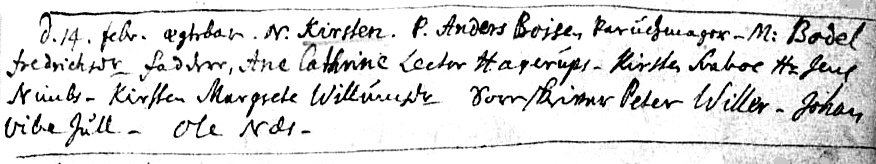 d. 14. febr. ægtebarn N. Kirsten. P. Anders Boisen Paruchmager - M: Bodel
fredrichsdr faddere, Ane Cathrine Lector Hagerups - Kirsten Raboe Hr Jens
Nimbs - Kirsten Margrete Willumsdr Peter Willer - Johan
vibe Jull - Ole Næs -